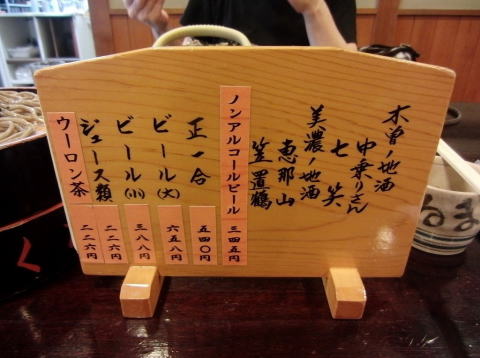 木曽ノ地酒
中乗りさん
七笑
美濃ノ地酒
恵那山
笠置鶴
ノンアルコールビール 三四五円
正一合 五四〇円
ビール(大) 六五八円
ビール(小) 三八八円
ジュース類 二二六円
ウーロン茶 二二六円
く
るま